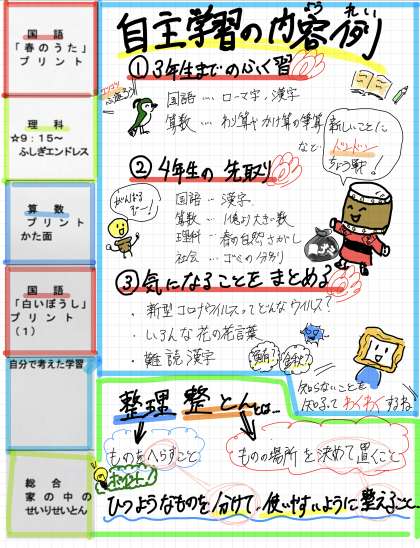 国語
「春のうた」
プリント
理科
☆9:15〜
ふしぎエンドレス
算数
プリント
かた面
国語
「白いぼうし」
プリント
(1)
自分で考えた学習
総合
家の中の
せいりせいとん
自主学習の内容例
ようれい
①3年生までのふく習
国語…ローマ字,漢字
算数…わり算やかけ算の筆算
など
新しいことに
ドンドン
ちょう戦!
②4年生の先取り
がんばる
ぞー!
国語…漢字
算数…1億より大きい数
理科…春の自然さがし
社会…ゴミの分別
③気になることをまとめる
・新型コロナウイルスってどんなウイルス?
・いろんな花の花言葉
・難読漢字
知らないことを
知るってわくわくするね
整理整とんとは…
ものをへらすこと
ものの場所を決めて置くこと
ポイント!
ひつようなものを分けて、使いやすいように整えること…